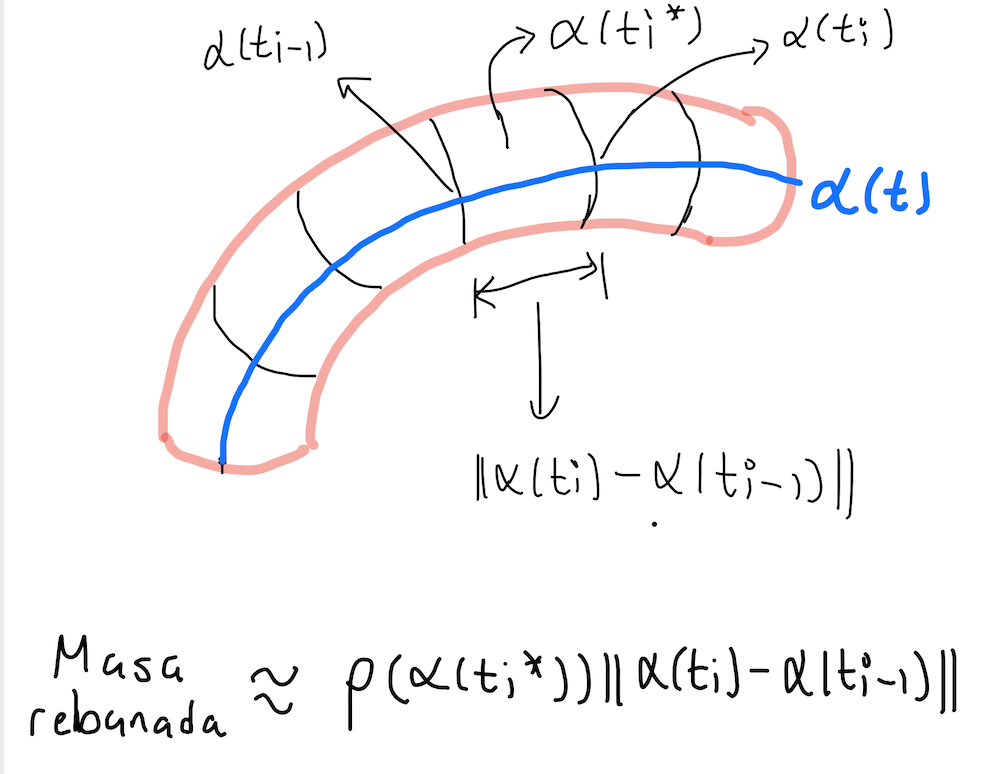 α(tᵢ₋₁)
α(tᵢ*)
α(tᵢ)
α(t)
||α(tᵢ) - α(tᵢ₋₁)||
Masa
rebanada ≈ ρ(α(tᵢ*))||α(tᵢ) - α(tᵢ₋₁)||